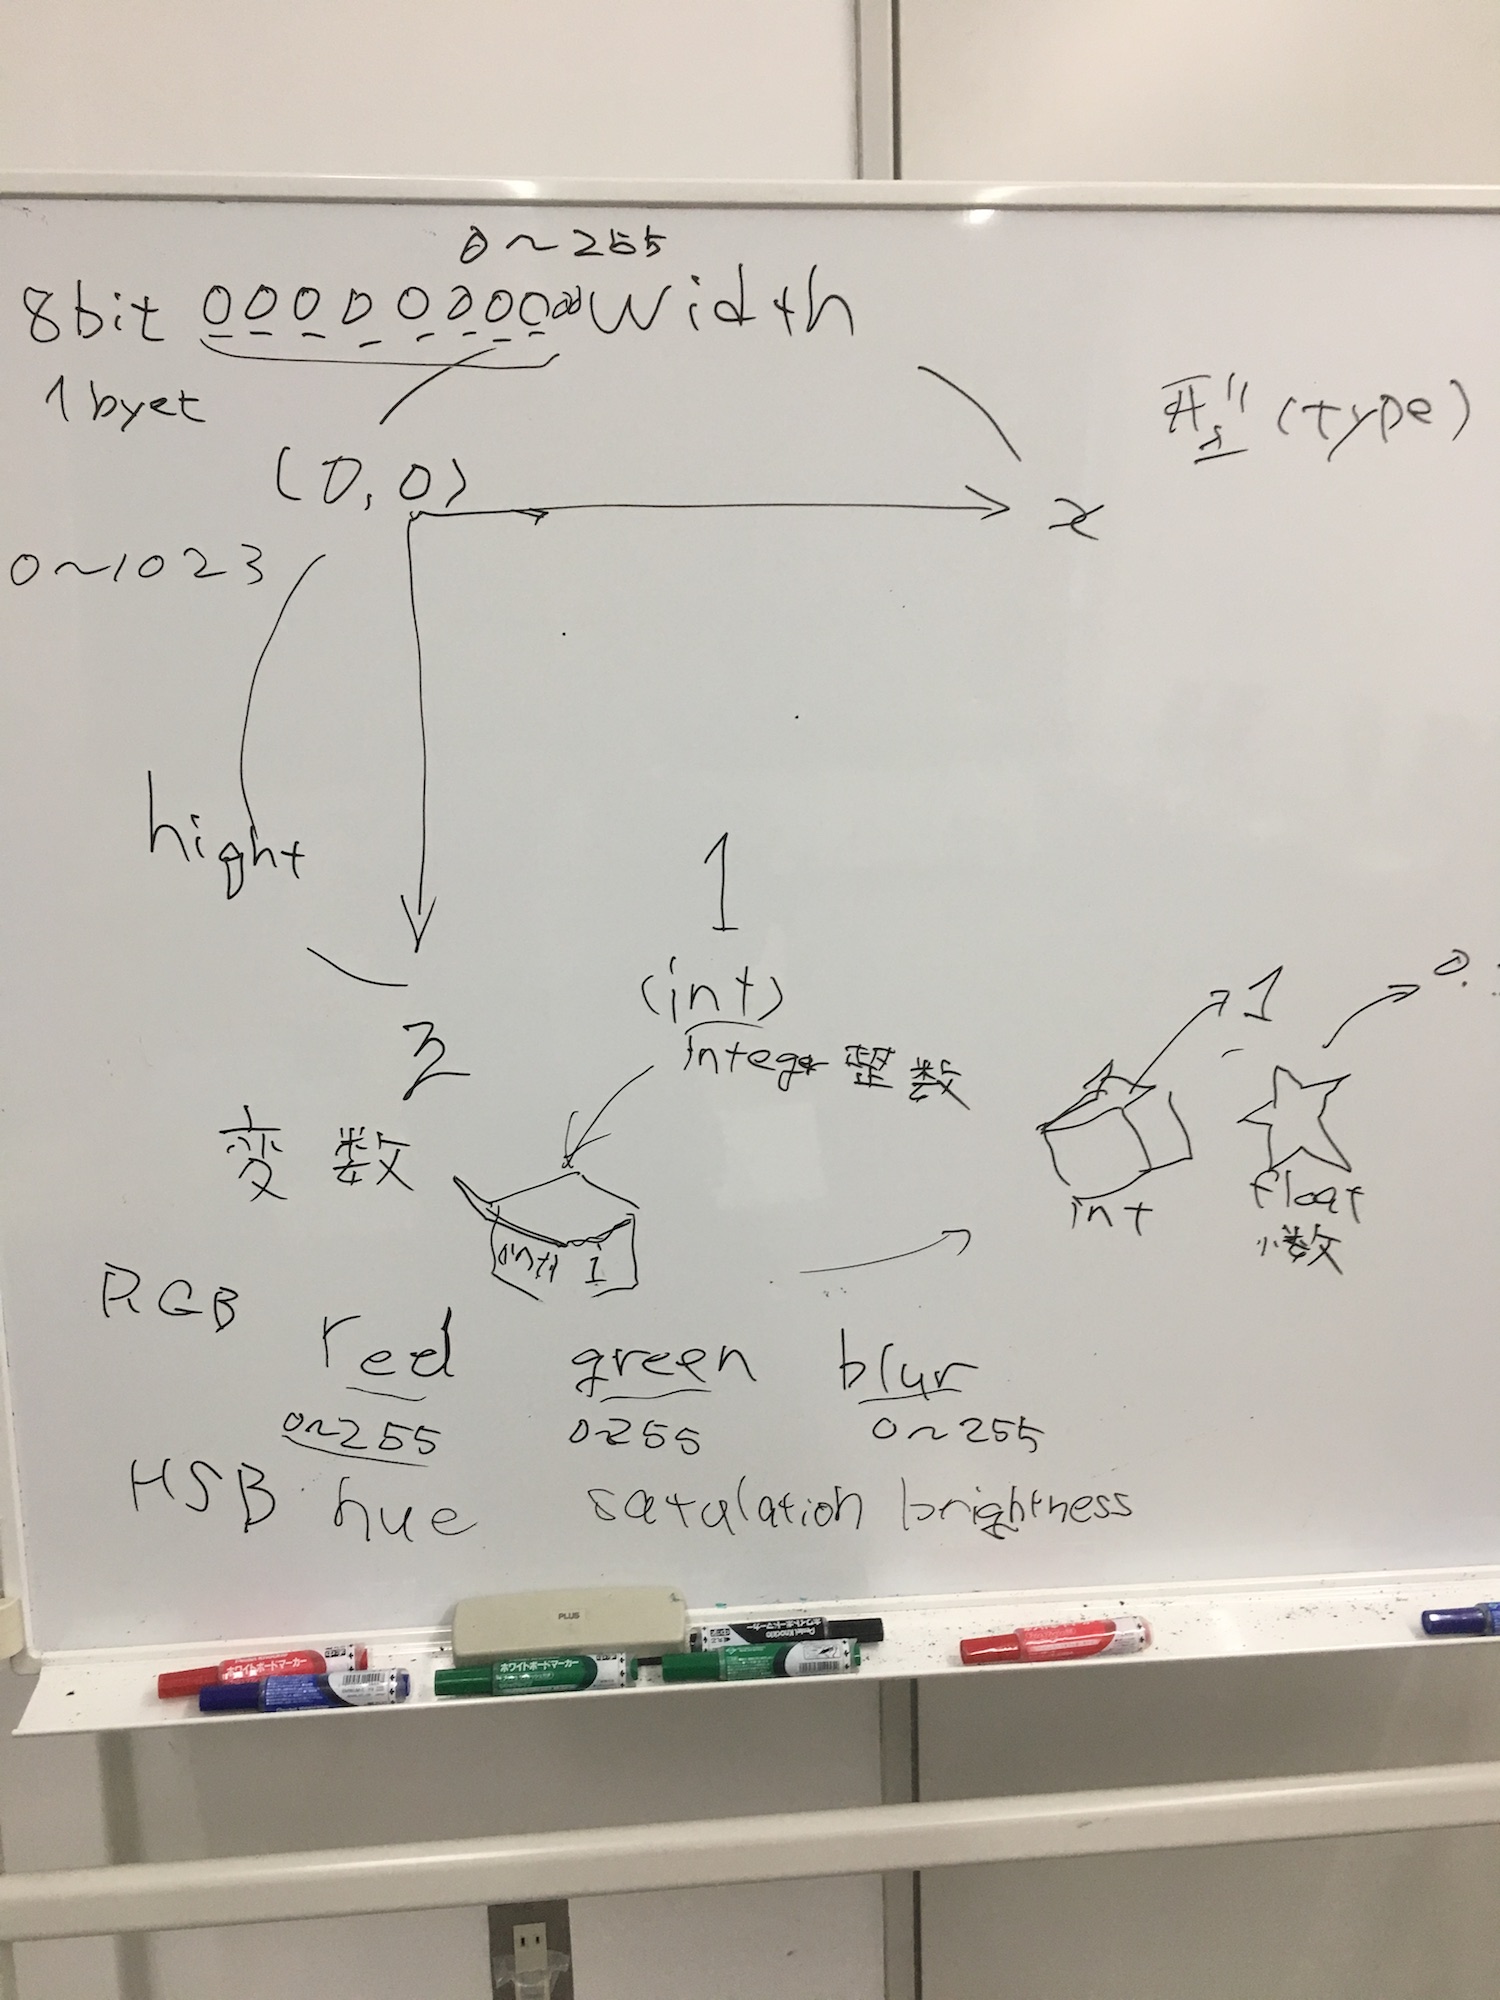 0~255
8bit 00000000 00 width
1byet
型 (type)
(0,0)
x
0~1023
hight
1
(int)
integer 整数
1
0.
変数
int 1
int
float
小数
RGB
red green blur
0~255 0~255 0~255
HSB hue satulation brightness
PLUS
ホワイトボードマーカー
ホワイトボードマーカー
ホワイトボードマーカー